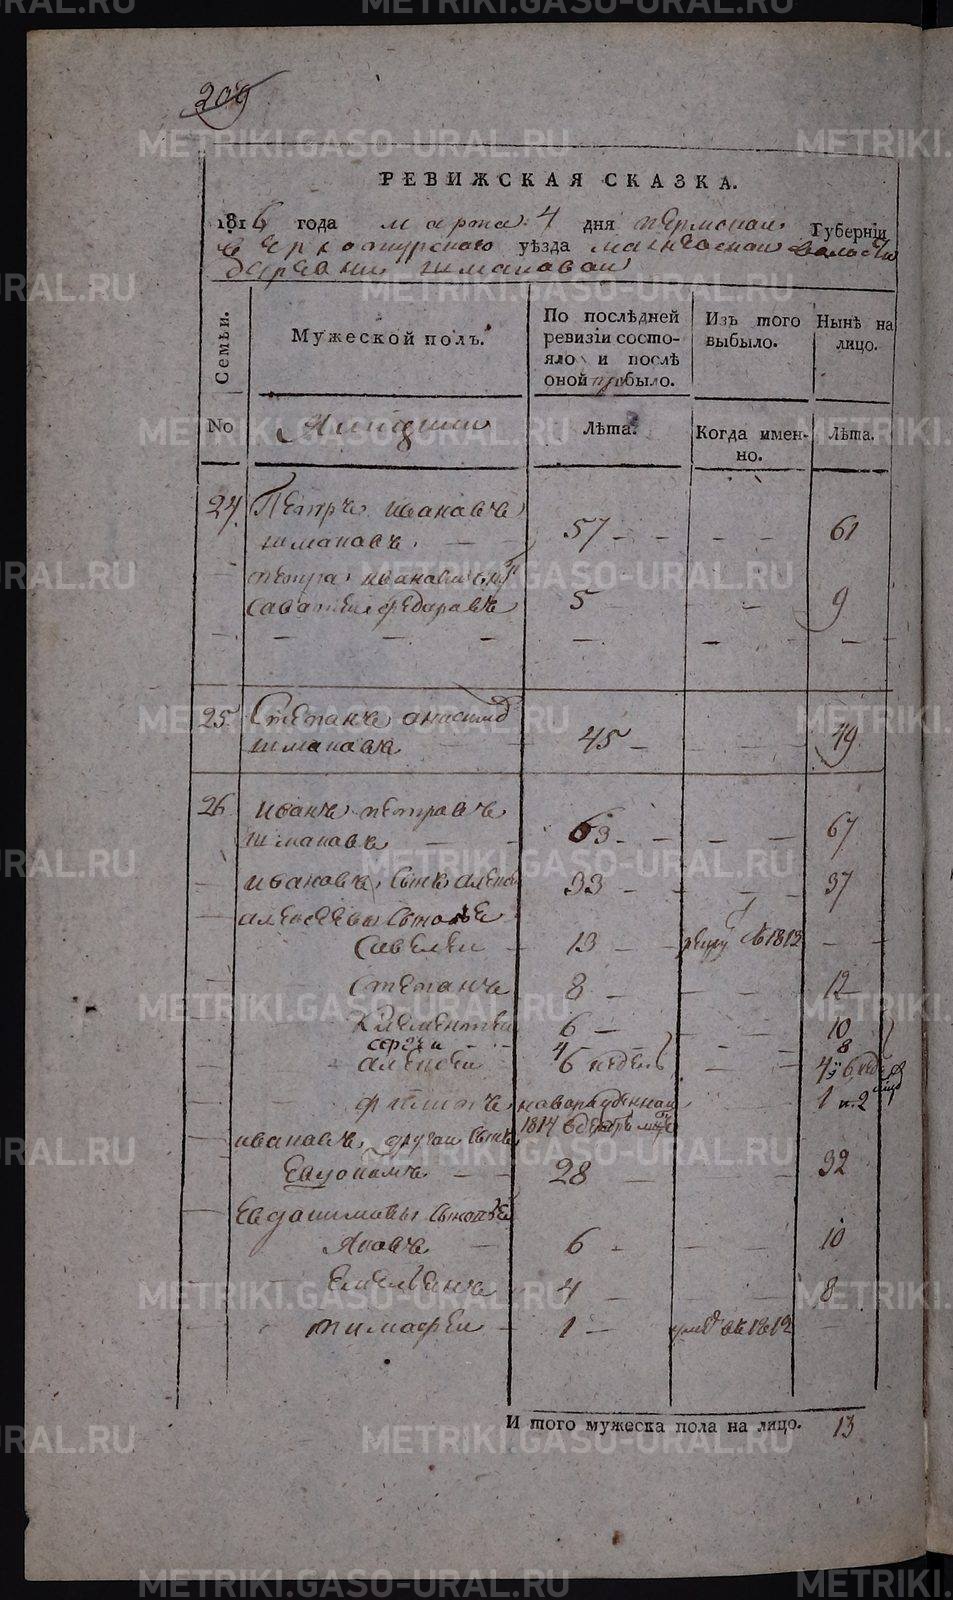 METRIKI.GASO-URAL.RU
209
РЕВИЖСКАЯ СКАЗКА.
1816 года марта 4 дня пермской Губерніи
верхотурского уѣзда волости
деревни шмаковой
Семьи.
Мужеской полъ.
По послѣдней ревизіи состо-
яло и послѣ
оной прибыло.
Изъ того
выбыло.
Нынѣ на
лицо.
No
Лѣта.
Когда имен-
но.
Лѣта.
24. Петръ ивановъ
шмаковъ. 57 — — — — 61
петра ивановича
саватеи федоровъ 5 — — 9
25. Степанъ
шмаковъ — — 45 — — — 49
26 иванъ петровъ
шмаковъ — — 63 — — — — 67
ивановъ сынъ алексеи 33 — — — — 37
алексеевы сыновье
савелеи — 13 — — 1812 — —
степанъ 8 — — — 12
клементеи 6 — — — 10
сергеи — 4 — — 8
алексеи 6 недель — — 4 и 6 недел
филипъ новорожденнои 1 и 2
1814
ивановъ другои сынъ
Евдокимъ — — 28 — 32
Евдокимовы сыновьеи
Яковъ — 6 — — — 10
Емельянъ 4 — — — 8
тимофеи — 1 — 1812 —
И того мужеска пола на лицо. 13